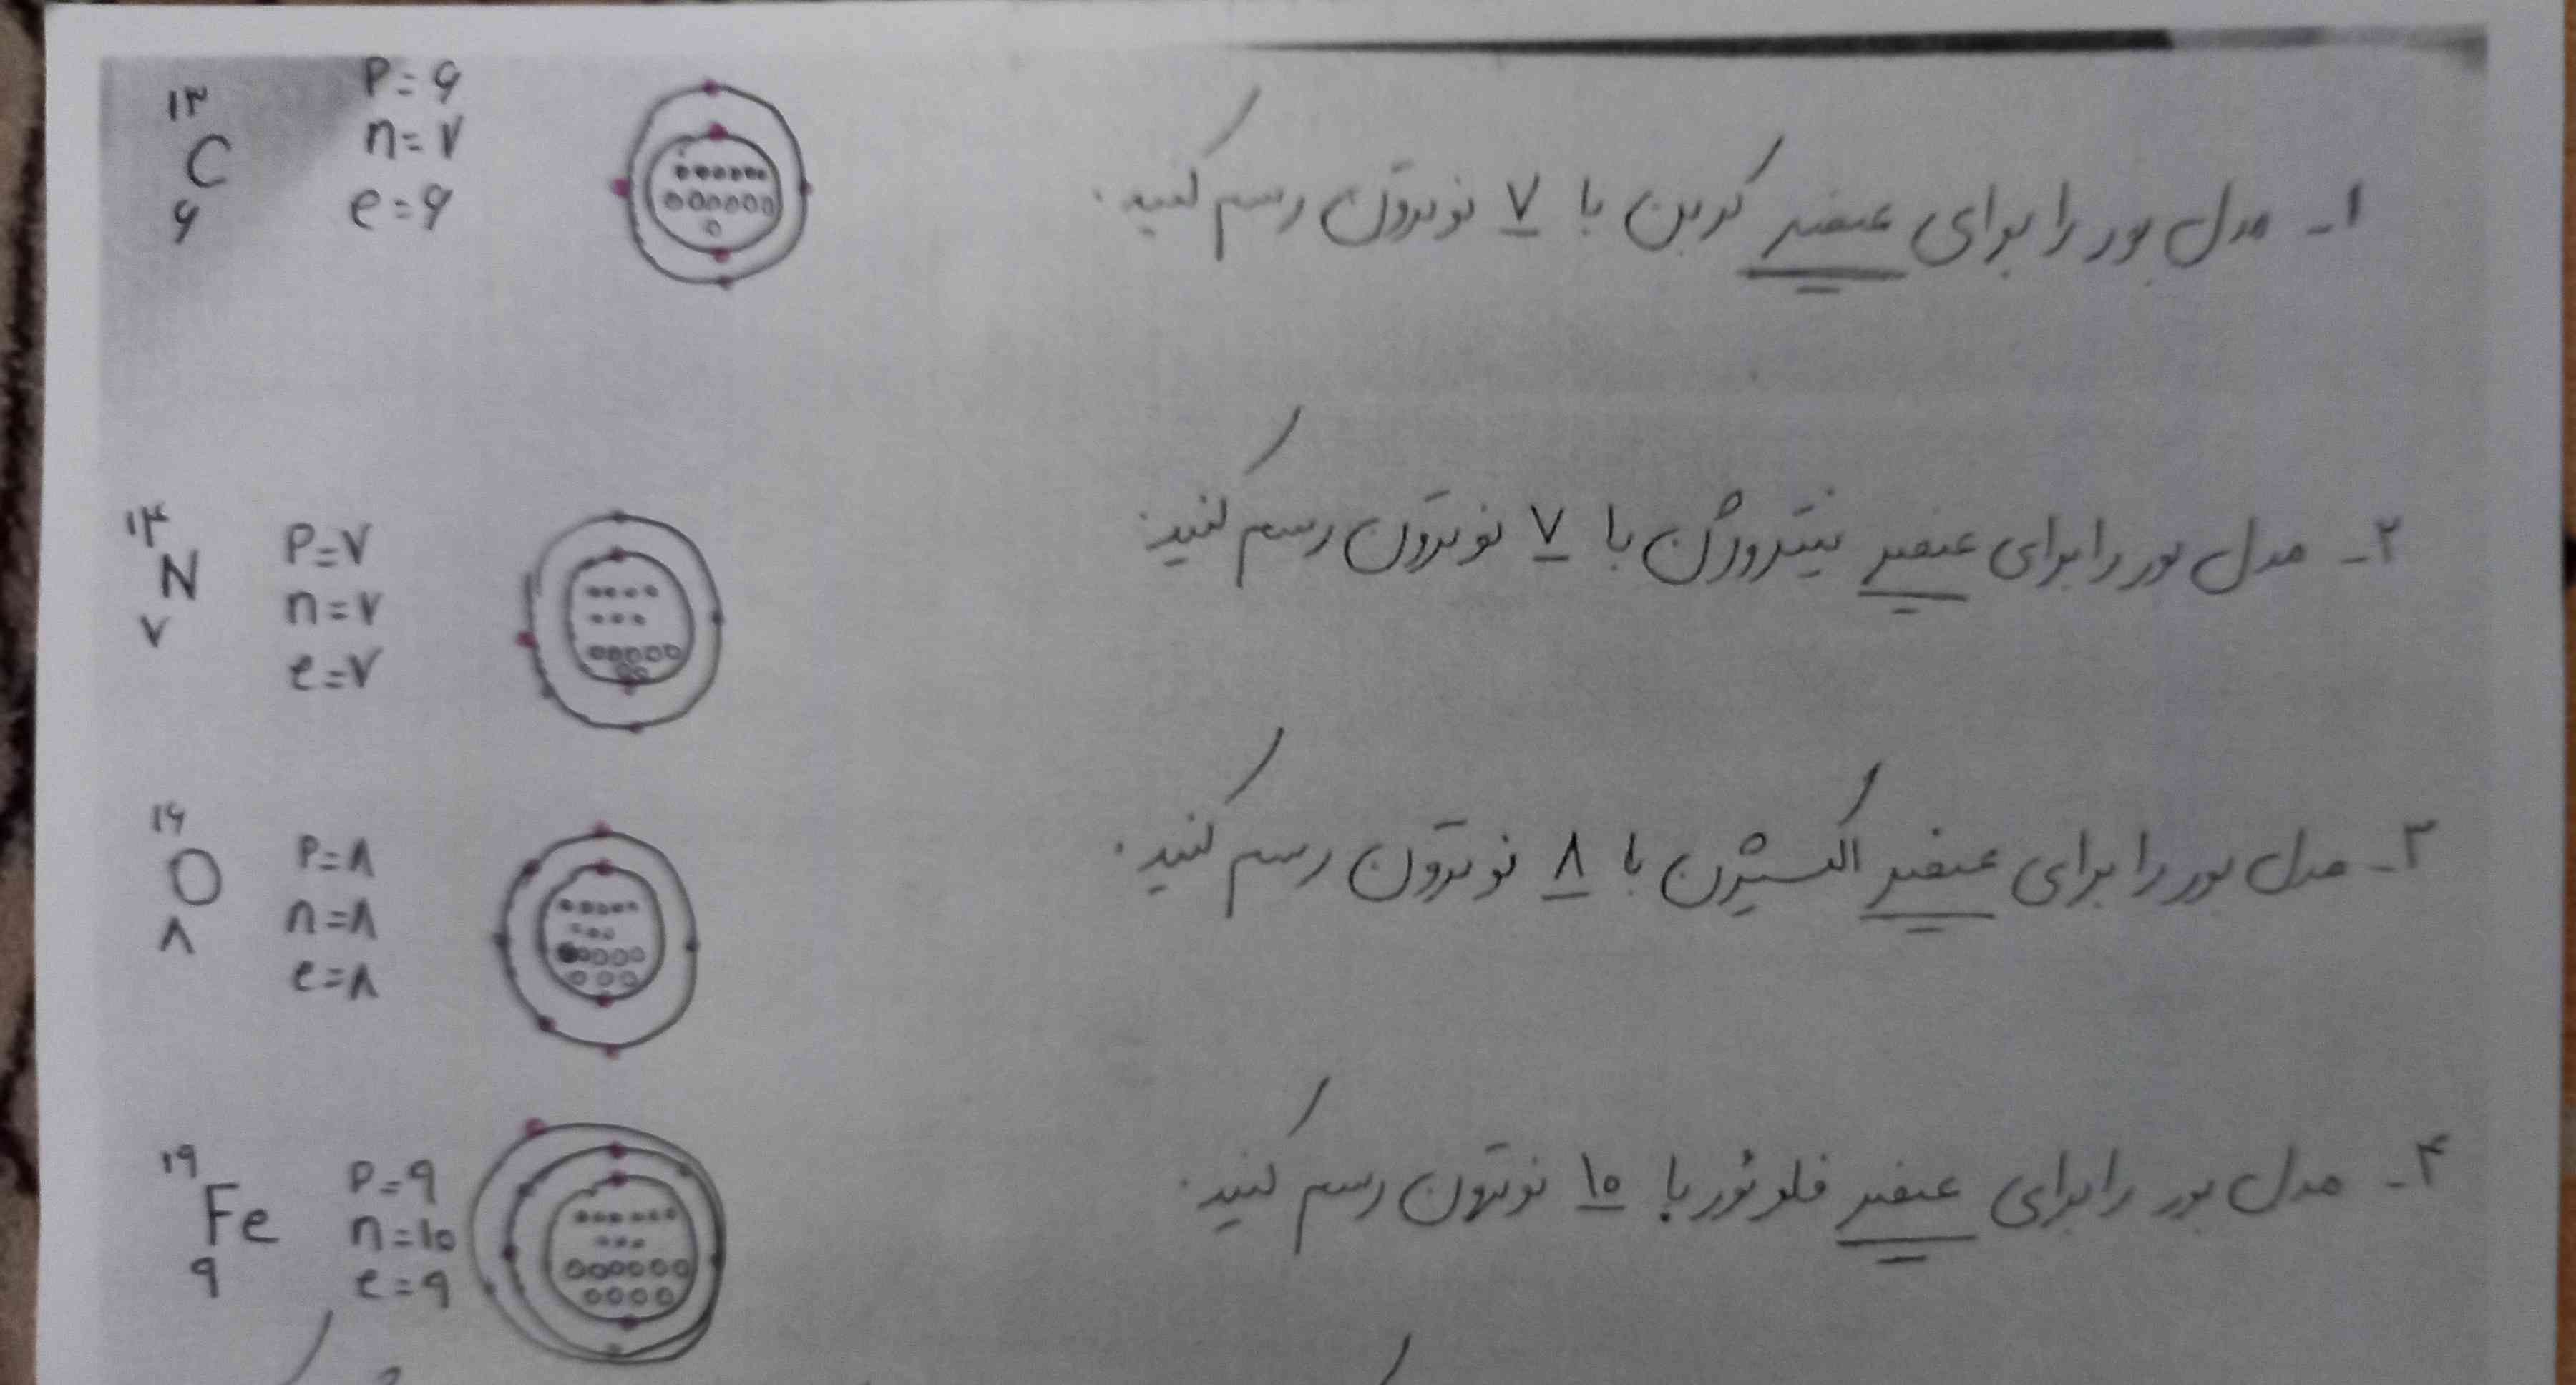 ۱ـ مدل بور را برای عنصر کربن با ۷ نوترون رسم کنید.
۱۳
C
۶
P=۶
n=۷
e=۶
۲ـ مدل بور را برای عنصر نیتروژن با ۷ نوترون رسم کنید.
۱۴
N
۷
P=۷
n=۷
e=۷
۳ـ مدل بور را برای عنصر اکسیژن با ۸ نوترون رسم کنید.
۱۶
O
۸
P=۸
n=۸
e=۸
۴ـ مدل بور را برای عنصر فلوئور با ۱۰ نوترون رسم کنید.
۱۹
Fe
۹
P=۹
n=۱۰
e=۹